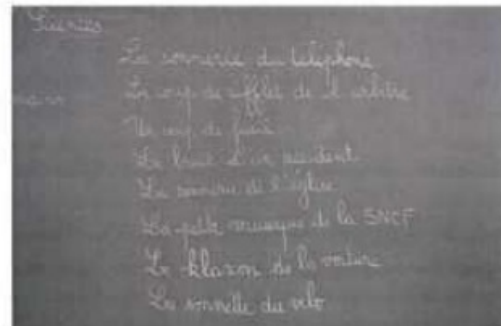 La sonnerie du téléphone
Le coup de sifflet de l'arbitre
Un coup de fusil
Le bruit d'un accident
La sonnerie de l'église
La petite musique de la SNCF
Le klaxon de la voiture
La sonnette du vélo